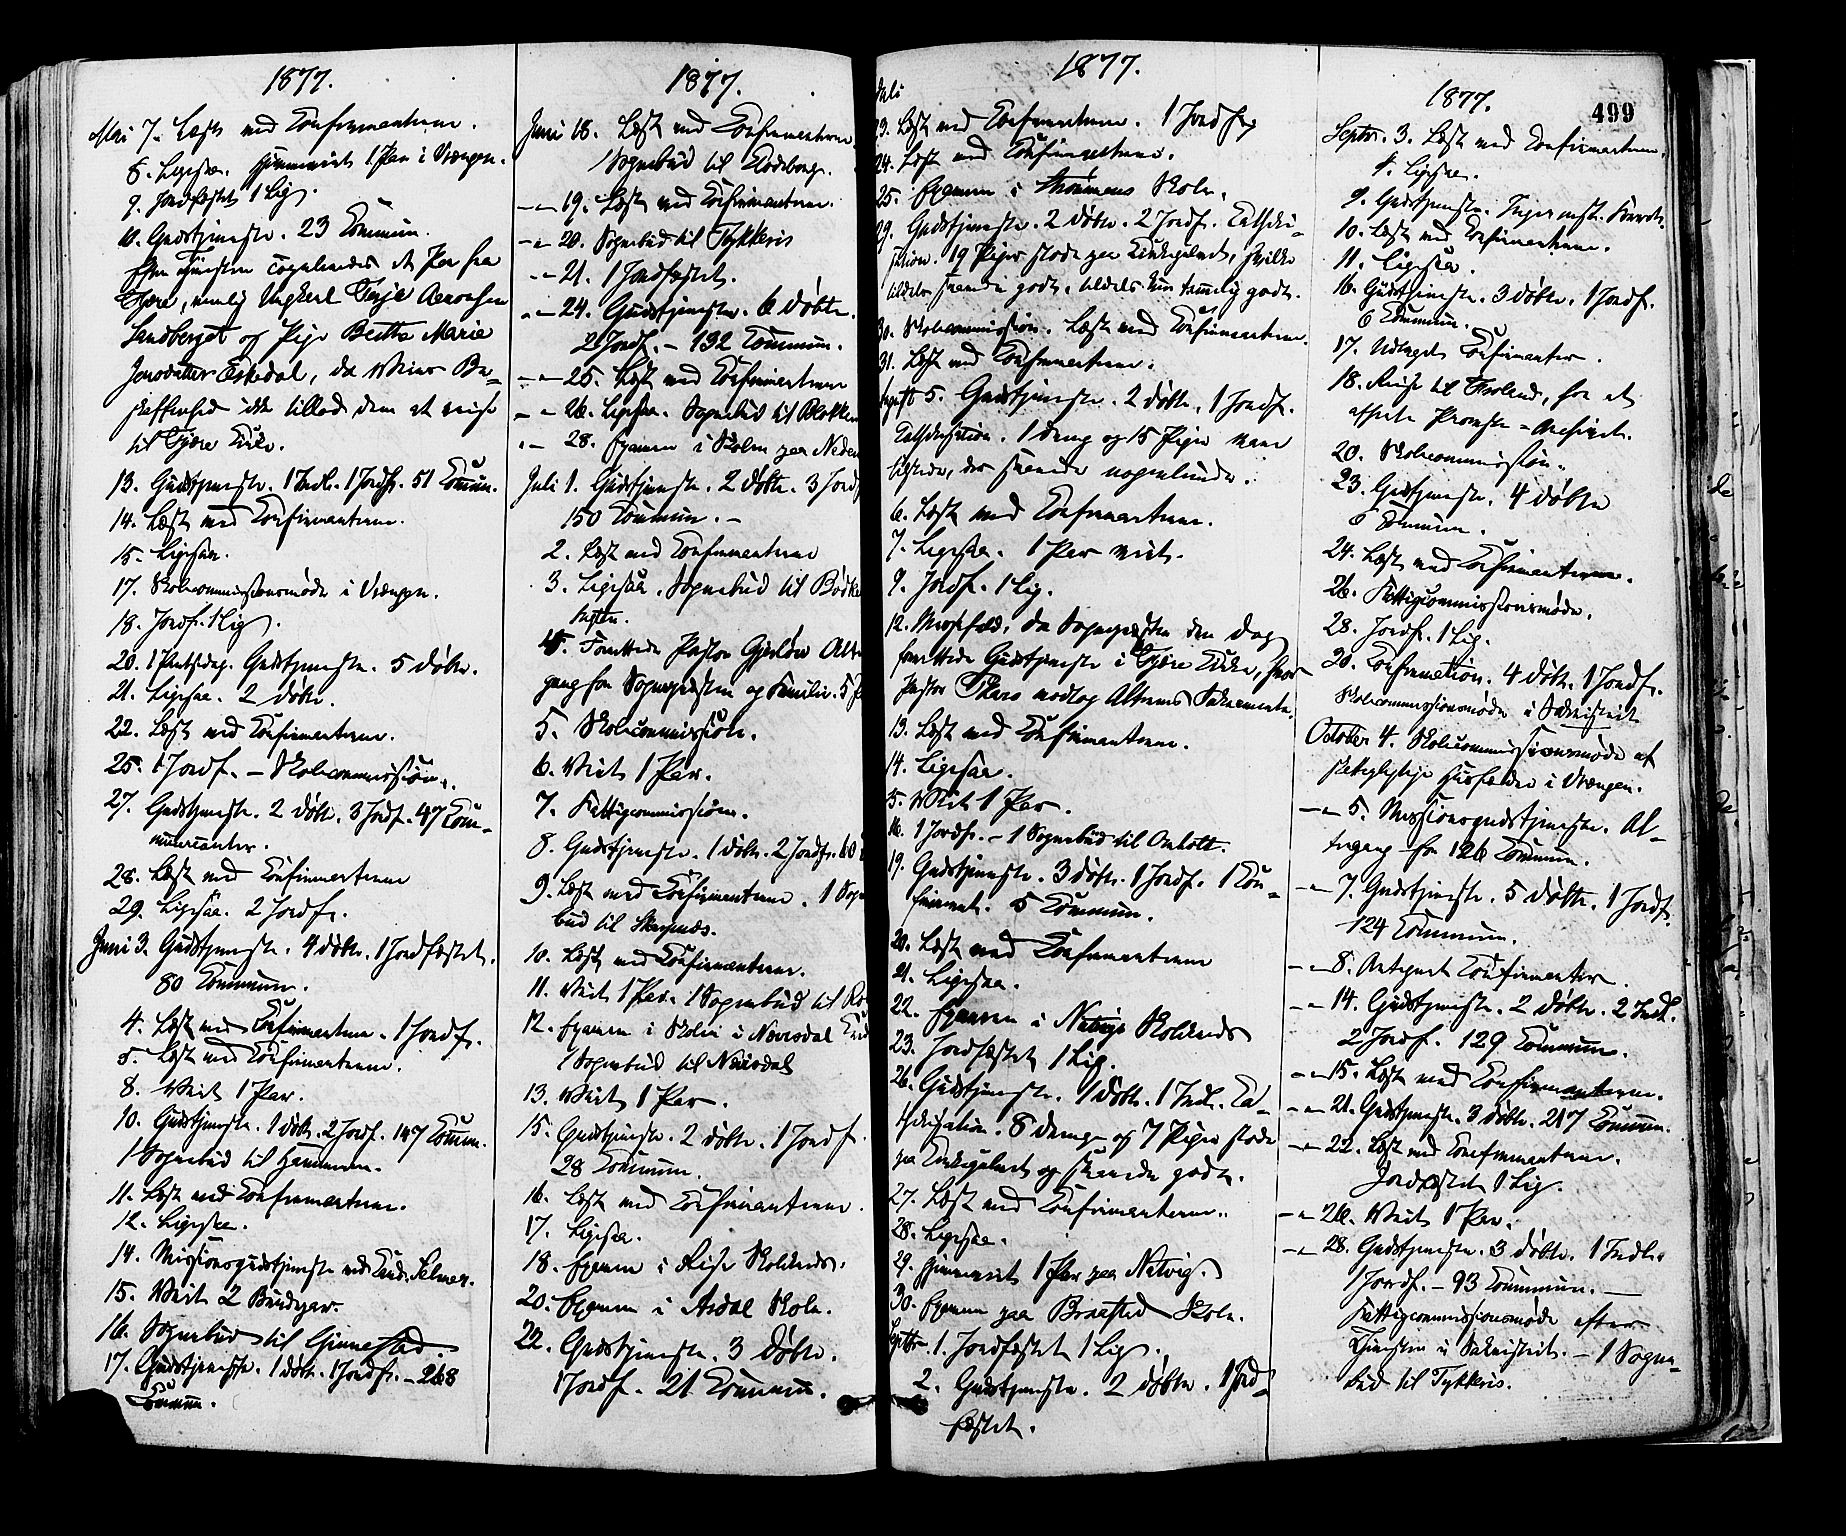 1877.
Mai 7. Læst med Confirmanterne.
8. Ligesaa. Hjemmeviet 1 Par i Vrængen.
9. Jordfæstet 1 Lig.
10. Gudstjeneste. 23 Commun.
Efter Tjenesten copuleredes et Par fra
Tjøre, nemlig Ungkarl Terje Aaronsen
Sandberget og Pige Berthe Marie
Jensdatter Eskedal, da Veiens Be-
skaffenhed ikke tillod dem at reise
til Tjøre Kirke.
13. Gudstjeneste. 1 Indl. 1 Jordf. 51 Commun.
14. Læst med Confirmanterne.
15. Ligesaa.
17. Skolecommissionsmøde i Vrængen.
18. Jordf. 1 Lig.
20. 1 Pintsdag. Gudstjeneste. 5 døbte.
21. Ligesaa. 2 døbte.
22. Læst med Confirmanterne.
25. 1 Jordf. – Skolecommission.
27. Gudstjeneste. 2 døbte. 3 Jordf. 47 Com-
municanter.
28. Læst med Confirmanterne
29. Ligesaa. 2 Jordf.
Juni 3. Gudstjeneste. 4 døbte. 1 Jordfæstet.
80 Commun.
4. Læst med Confirmanterne. 1 Jordf.
5. Læst med Confirmanterne.
8. Viet 1 Par.
10. Gudstjeneste. 1 døbt. 2 Jordf. 147 Commun.
1 Sognebud til Hammeren.
11. Læst med Confirmanterne.
12. Ligesaa.
14. Missionsgudstjeneste ved Cand. Selmer.
15. Viet 2 Brudepar.
16. Sognebud til Ginnestad
17. Gudstjeneste. 1 døbt. 1 Jordf. – 268
Commun.
1877.
Juni 18. Læst med Confirmanterne
1 Sognebud til
–"– 19. Læst med Confirmanterne.
–"– 20. Sognebud til Tykkeris
–"– 21. 1 Jordfæstet.
–"– 24. Gudstjeneste. 6 døbte.
2 Jordf. – 132 Commun.
–"– 25. Læst med Confirmanterne
–"– 26. Ligesaa. Sognebud til Blokken
–"– 28. Examen i Skolen paa Neden
Juli 1. Gudstjeneste. 2 døbte. 3 Jordf
150 Commun. –
2. Læst med Confirmanterne
3. Ligesaa. Sognebud til Bødke
4. Forrettede Pastor Gjerløw Alter
gang for Sognepræsten og Familie. 5
5. Skolecommission.
6. Viet 1 Par.
7. Fattigcommission.
8. Gudstjeneste. 1 døbt. 2 Jordf. 60
9. Læst med Confirmanterne. 1 Sogne
bud til Skarpnæs.
10. Læst med Confirmanterne.
11. Viet 1 Par. 1 Sognebud til
12. Examen i Skolen i Næversdal
1 Sognebud til Næversdal
13. Viet 1 Par.
15. Gudstjeneste. 2 døbte. 1 Jordf.
28 Commun.
16. Læst med Confirmanterne.
17. Ligesaa.
18. Examen i Rise Skolekreds.
20. Examen i Asdal Skole.
22. Gudstjeneste. 3 døbte.
1 Jordf. 21 Commun.
1877.
Juli
23. Læst med Confirmanterne. 1 Jordf.
24. Læst med Confirmanterne.
25. Examen i Skole.
29. Gudstjeneste. 2 døbte. 2 Jordf. Catheki-
sation. 19 Piger stode paa Kirkegulvet, hvilke
tildels svarede godt, tildels kun temmelig godt.
30. Skolecommission. Læst med Confirmanterne.
31. Læst med Confirmanterne.
August 5. Gudstjeneste. 2 døbte. 1 Jordf.
Cathekisation. 1 dreng og 15 Piger vare
tilstede, der svarede nogenlunde.
6. Læst med Confirmanterne.
7. Ligesaa. 1 Par viet.
9. Jordf. 1 Lig.
12. Messefald, da Sognepræsten den dag
forrettede Gudstjeneste i Tjøre Kirke, hvor
Pastor modtog Alterens Sakramente.
13. Læst med Confirmanterne.
14. Ligesaa.
15. Viet 1 Par.
16. 1 Jordf. – 1 Sognebud til Omholt.
19. Gudstjeneste. 3 døbte. 1 Jordf. 1 Con-
firmeret. 5 Commun.
20. Læst med Confirmanterne
21. Ligesaa.
22. Examen i Natvigs Skolekreds
23. Jordfæstet 1 Lig.
26. Gudstjeneste. 1 døbt. 1 Indl. Ca-
thekisation. 8 drenge og 7 Piger stode
paa Kirkegulvet og svarede godt.
27. Læst med Confirmanterne.
28. Ligesaa.
29. Hjemmeviet 1 Par paa Natvig.
30. Examen paa Braastad Skole.
Septbr. 1. Jordfæstet 1 Lig.
2. Gudstjeneste. 2 døbte. 1 Jord-
fæstet.
1877.
499
Septbr. 3. Læst med Confirmanterne.
4. Ligesaa.
9. Gudstjeneste. Ingen
10. Læst med Confirmanterne.
11. Ligesaa.
16. Gudstjeneste. 3 døbte. 1 Jordf.
6 Commun.
17. Udtaget Confirmanter.
18. Reise til Froland, for at
aflevere Provste-Archivet.
20. Skolecommission.
23. Gudstjeneste. 4 døbte
6 Commun.
24. Læst med Confirmanterne.
26. Fattigcommissionsmøde.
28. Jordf. 1 Lig.
30. Confirmation. 4 døbt. 1 Jordf.
Skolecommissionsmøde i Sakristiet
October 4. Skolecommissionsmøde af
i Vrængen.
–"– 5. Missionsgudstjeneste. Al-
tergang for 126 Commun.
–"– 7. Gudstjeneste. 5 døbte. 1 Jordf.
124 Commun.
–"– 8. Antegnet Confirmanter
–"– 14. Gudstjeneste. 2 døbte. 2 Indl.
2 Jordf. 129 Commun.
–"– 15. Læst med Confirmanterne.
–"– 21. Gudstjeneste. 3 døbte. 217 Commun.
–"– 22. Læst med Confirmanterne.
Jordfæstet 1 Lig.
–"– 26. Viet 1 Par.
–"– 28. Gudstjeneste. 3 døbte. 1 Indl.
1 Jordf. – 93 Commun. –
Fattigcommissionsmøde efter
Tjenesten i Sakristiet. – 1 Sogne-
bud til Tykkeris.